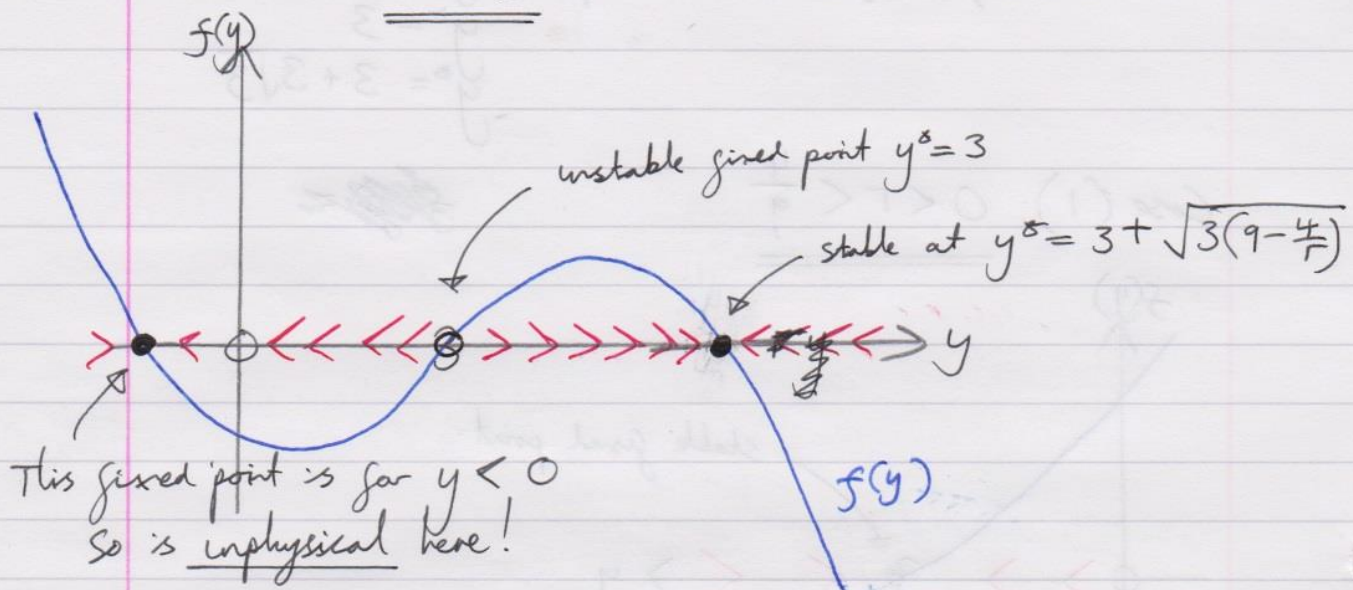 f(y)
unstable fixed point y* = 3
stable at y* = 3 + √3(9 - 4/r)
y
This fixed point is for y < 0
so is unphysical here!
f(y)